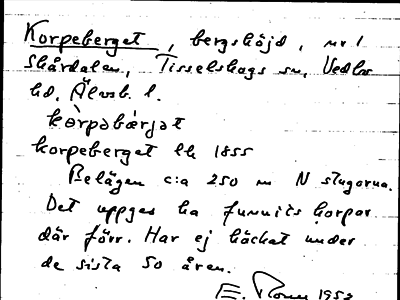 Korpeberget, bergshöjd, nr 1
Skårdalen, Tisselskogs sn, Vedbo
hd, Älvsb. l.
kòrpəbǽrjət
korpeberget lk 1855
Belägen c:a 250 m N stugorna.
Det uppges ha funnits korpar
där förr. Har ej häckat under
de sista 50 åren.
E.